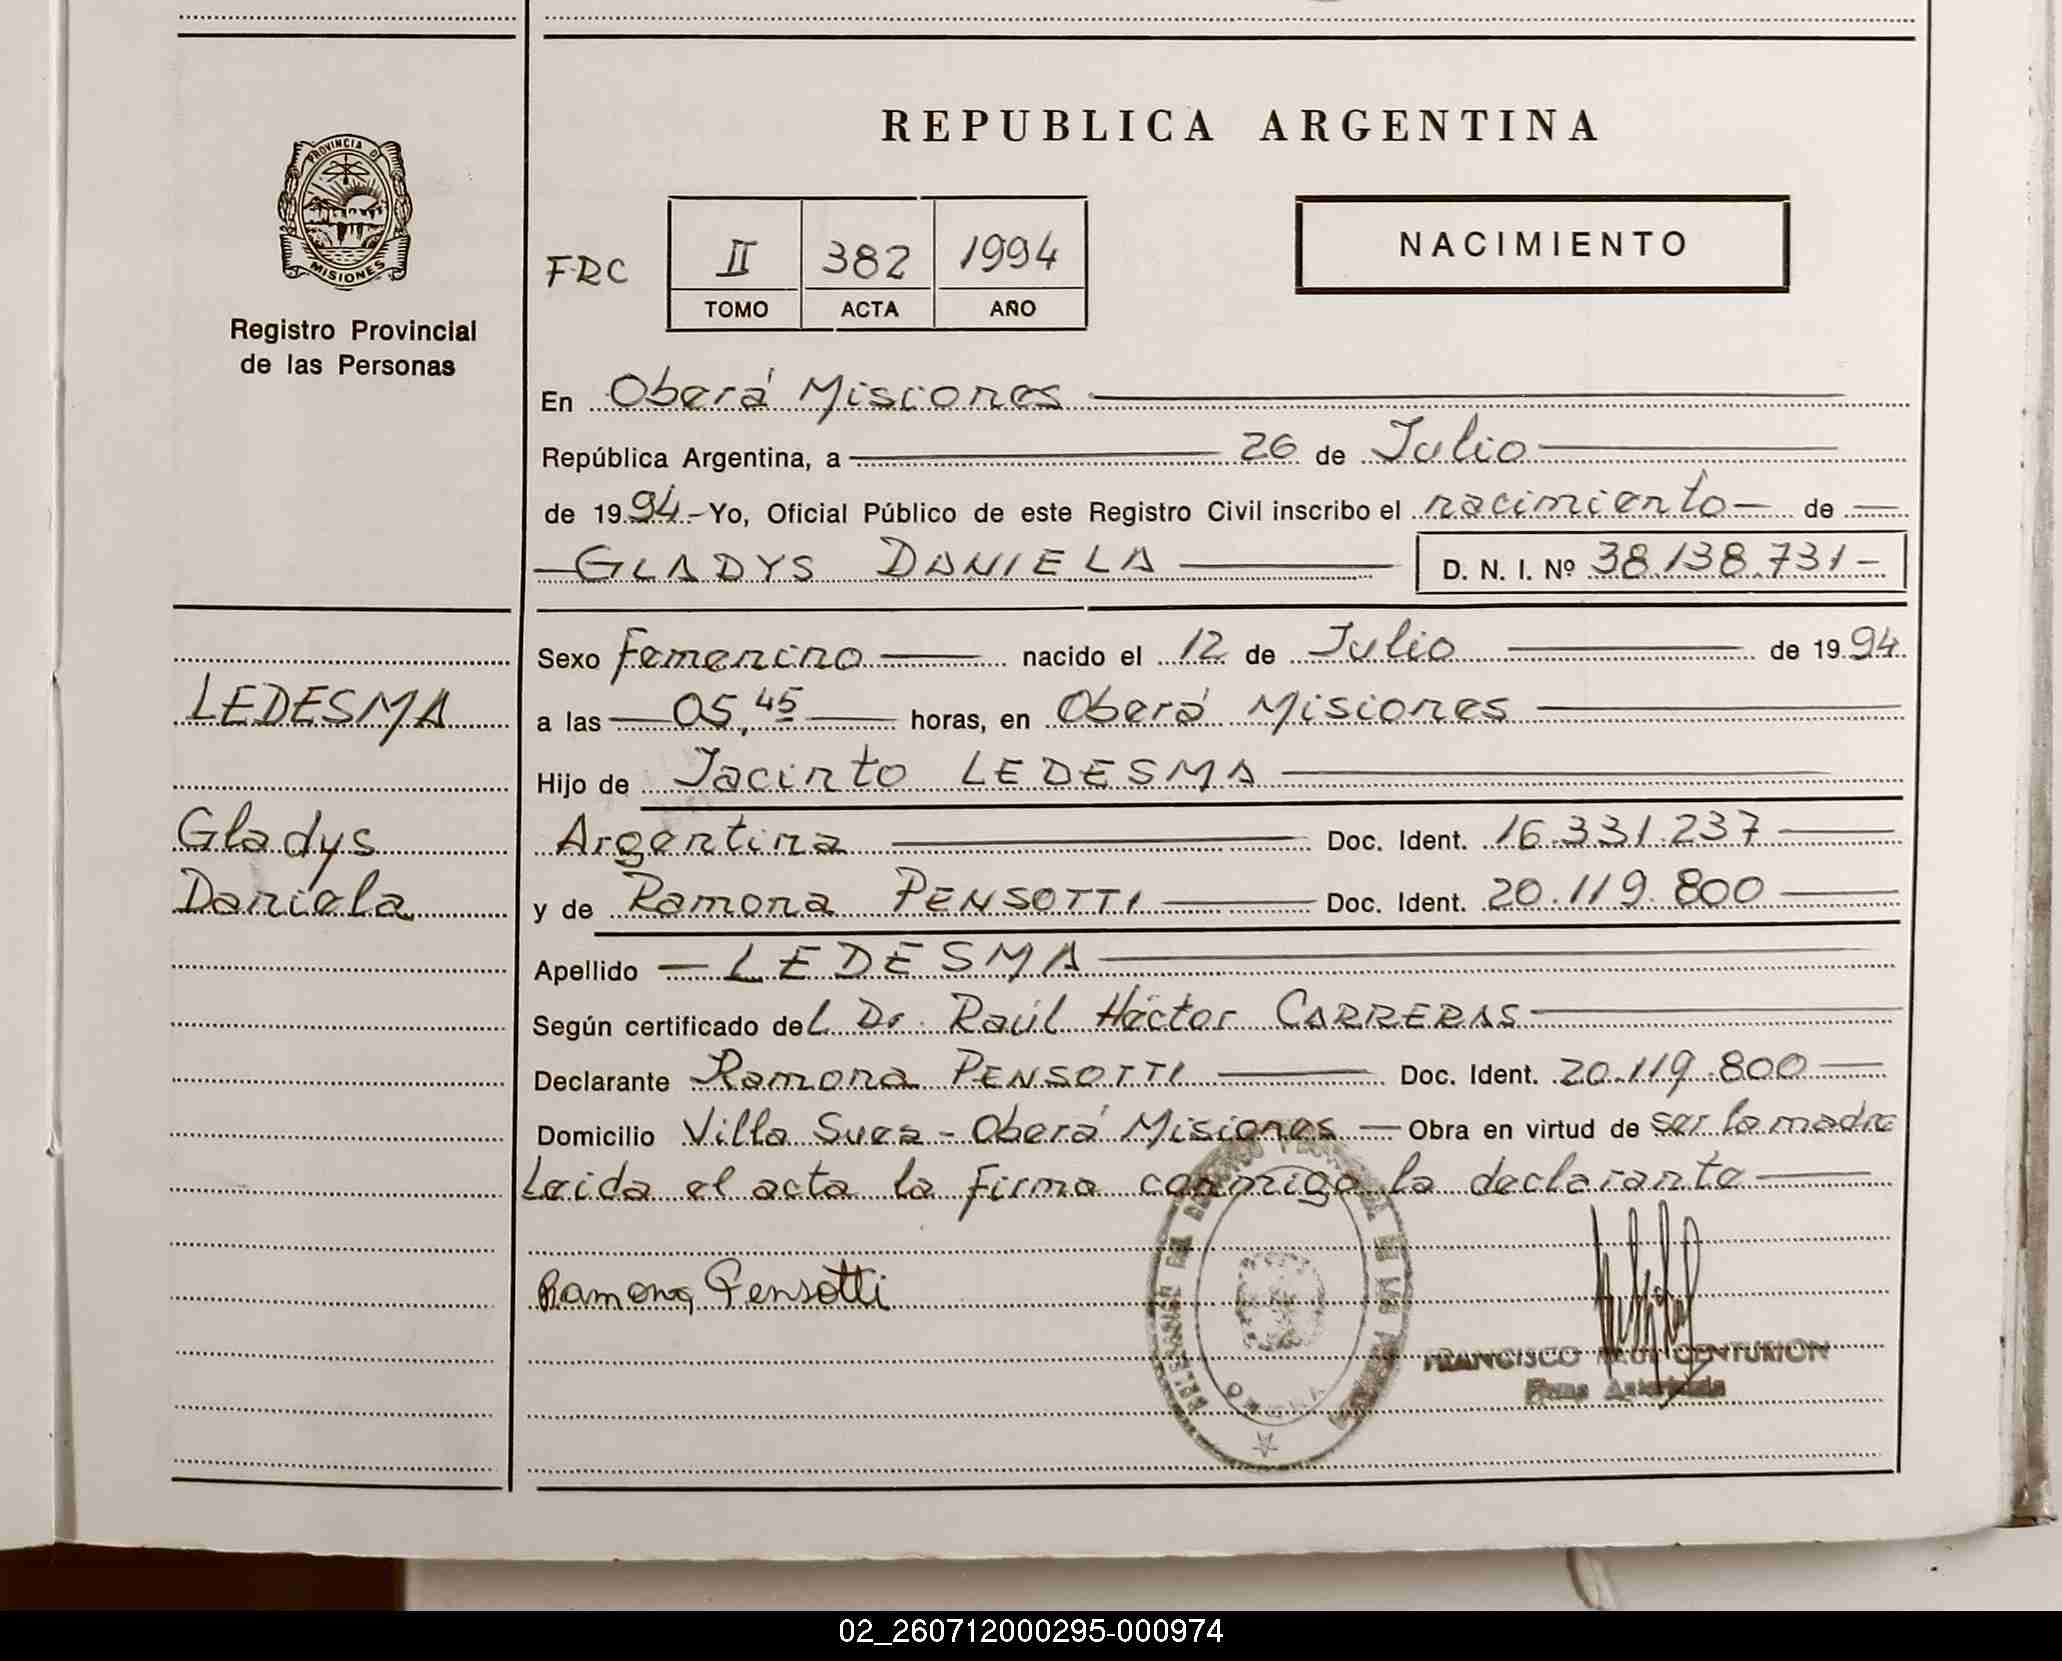 REPUBLICA ARGENTINA
PROVINCIA D
MISIONES
Registro Provincial
de las Personas
FRC
II 382 1994
TOMO ACTA AÑO
NACIMIENTO
En Oberá Misiones
República Argentina, a 26 de Julio
de 1994 - Yo, Oficial Público de este Registro Civil inscribo el nacimiento - de -
- GLADYS DANIELA D. N. I. Nº 38.138.731 -
Sexo Femenino nacido el 12 de Julio de 1994
LEDESMA
a las 05,45 horas, en Oberá Misiones
Hijo de Jacinto LEDESMA
Gladys
Argentina Doc. Ident. 16.331.237
Daniela
y de Ramona PENSOTTI Doc. Ident. 20.119.800
Apellido - LEDESMA
Según certificado del Dr. Raúl Héctor CARRERAS
Declarante Ramona PENSOTTI Doc. Ident. 20.119.800
Domicilio Villa Sues - Oberá Misiones - Obra en virtud de ser la madre
Leida el acta la firma conmigo la declarante
Ramona Pensotti
FRANCISCO RAUL CENTURION
Firma Autorizada
02_260712000295-000974